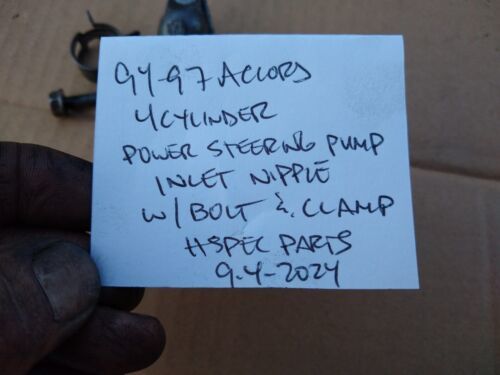 94-97 ACCORD
4 CYLINDER
POWER STEERING PUMP
INLET NIPPLE
W/ BOLT & CLAMP
HSPEC PARTS
9-4-2024